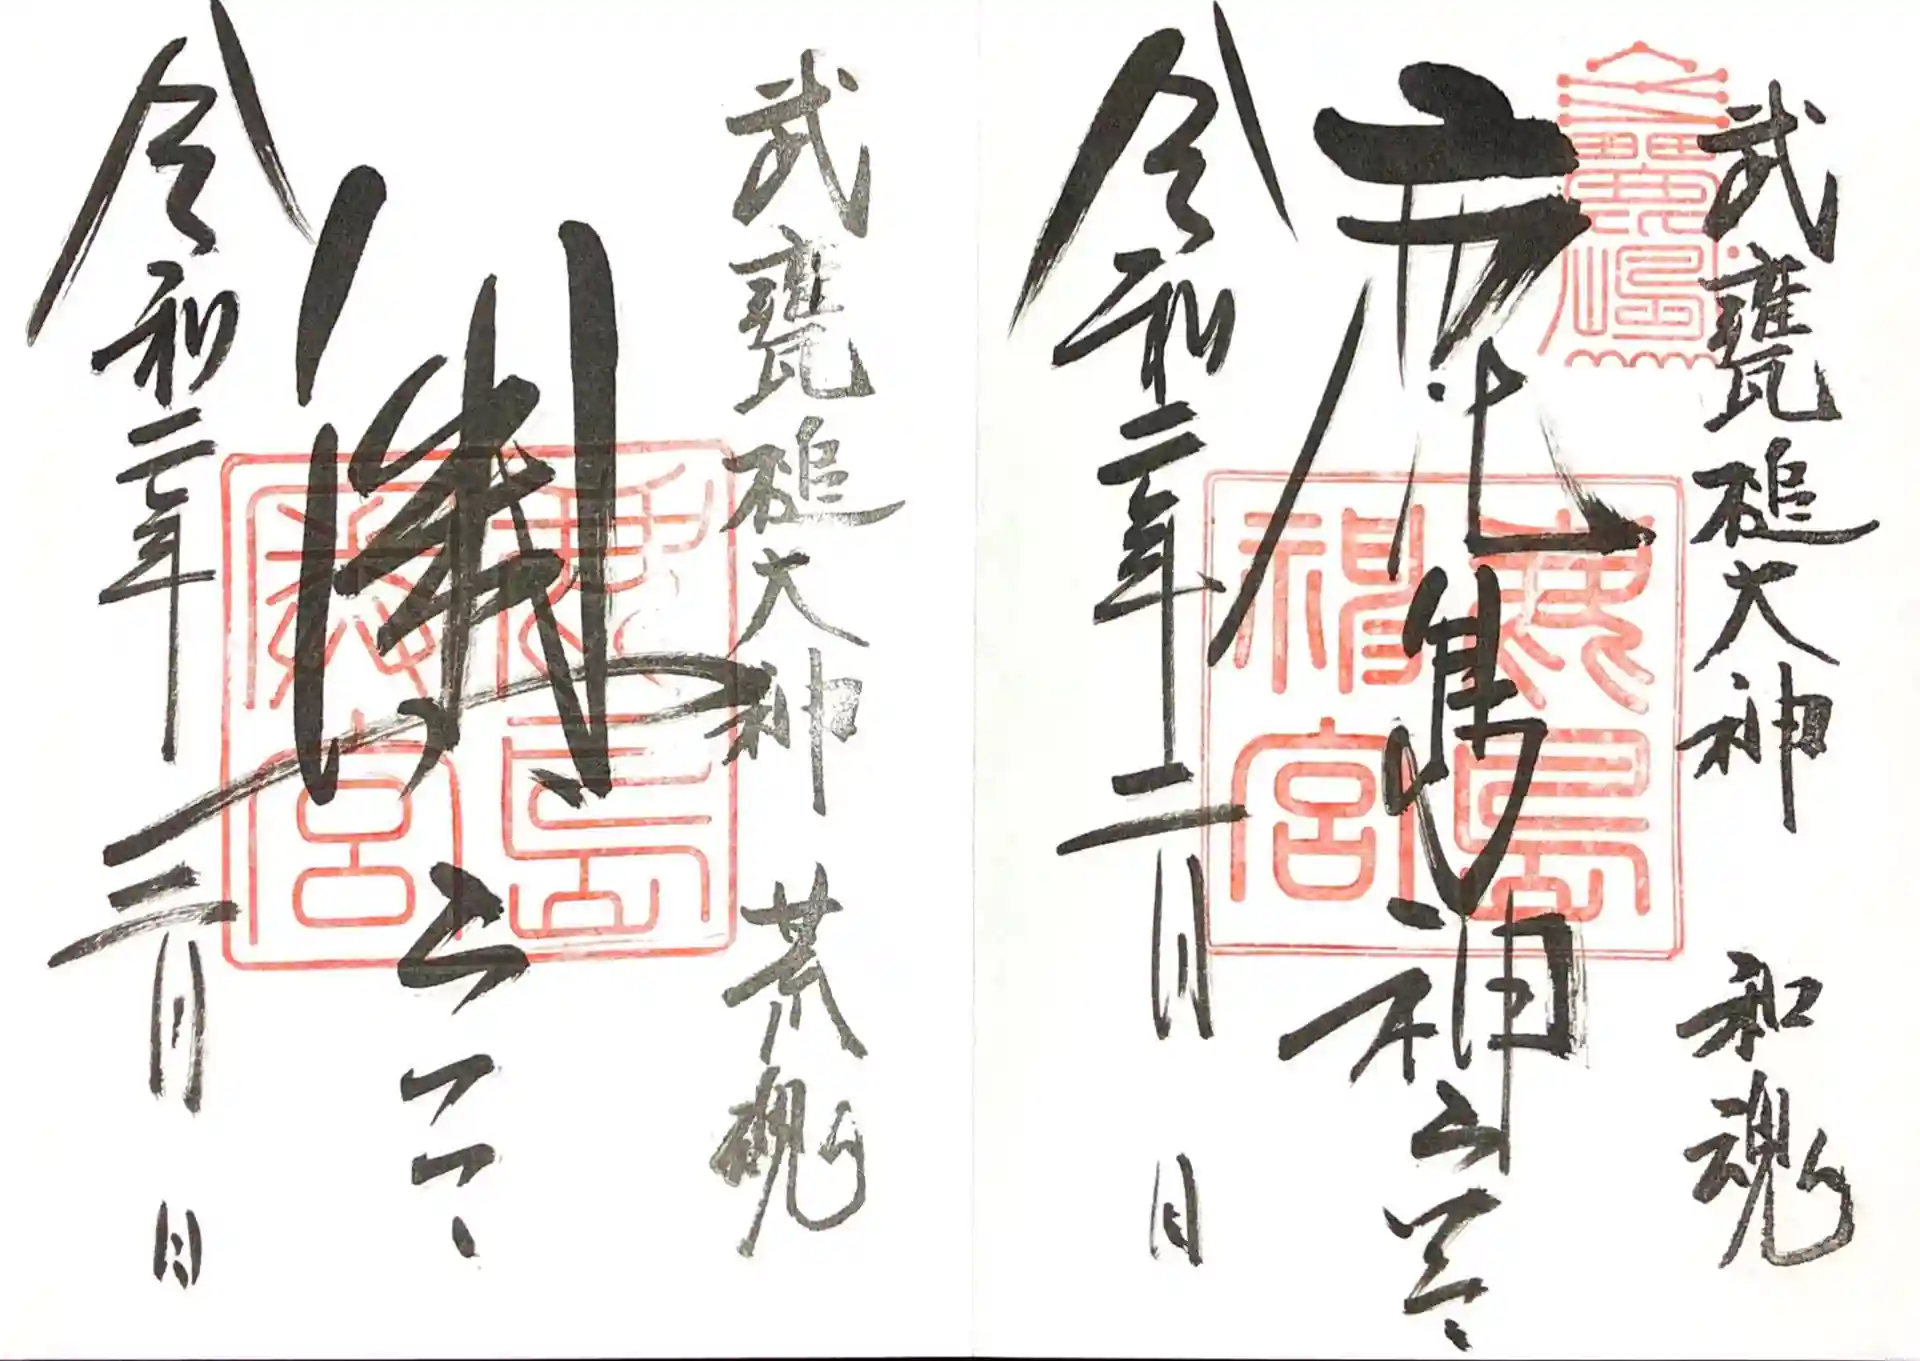 武甕槌大神 和魂
鹿島神宮
令和二年二月 日
鹿島神宮
武甕槌大神 荒魂
奥宮
令和二年二月 日
鹿島奥宮